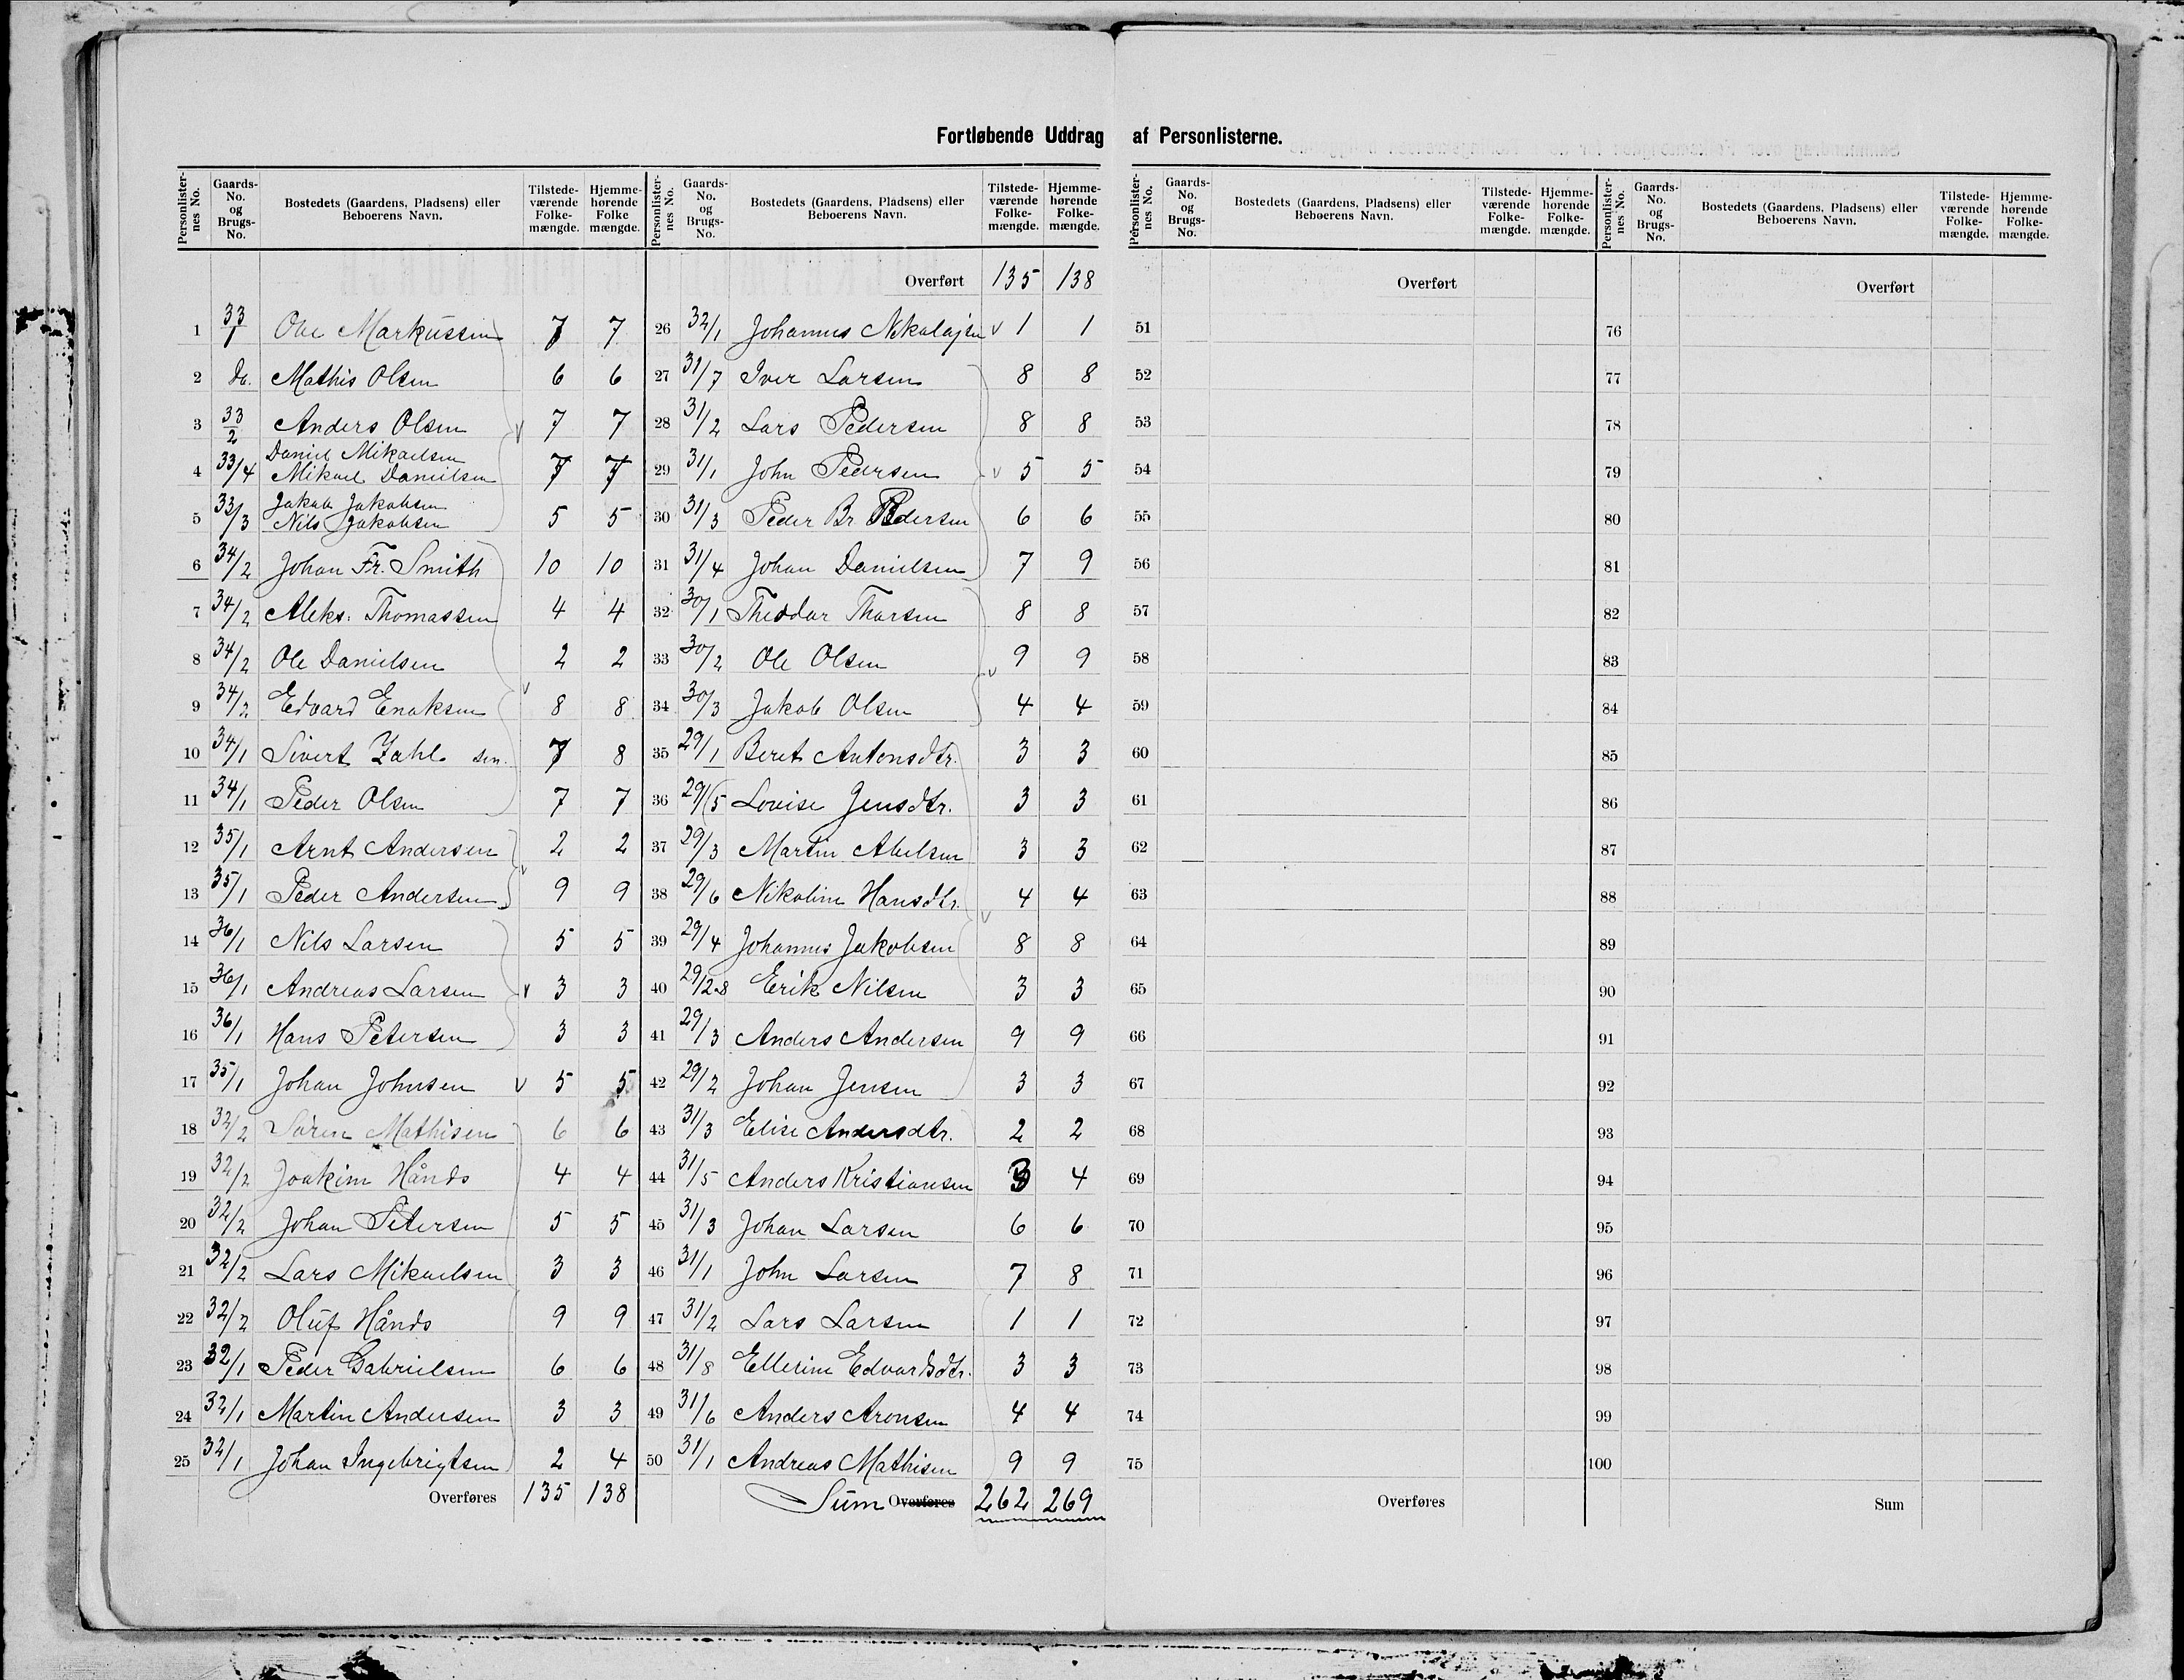 Fortløbende Uddrag af Personlisterne.
Personlister-nes No. Gaards-No. og Brugs-No. Bostedets (Gaardens, Pladsens) eller Beboerens Navn. Tilstede-værende Folke-mængde. Hjemme-hørende Folke mængde.
1 33/1 Ole Markussen 7 7
2 do. Mathis Olsen 6 6
3 33/2 Anders Olsen v 7 7
Daniel Mikaelsen
4 33/4 Mikael Danielsen 7 7
Jakob Jakobsen
5 33/3 Nils Jakobsen 5 5
6 34/2 Johan Fr. Smith 10 10
7 34/2 Aleks. Thomassen 4 4
8 34/2 Ole Danielsen 2 2
9 34/2 Edvard Enoksen v 8 8
10 34/1 Sivert Zahl sen. 7 8
11 34/1 Peder Olsen 7 7
12 35/1 Arnt Andersen 2 2
13 35/1 Peder Andersen v 9 9
14 36/1 Nils Larsen 5 5
15 36/1 Andreas Larsen v 3 3
16 36/1 Hans Petersen 3 3
17 35/1 Johan Johnsen v 5 5
18 32/2 Sören Mathisen 6 6
19 32/2 Joakim Hånds 4 4
20 32/2 Johan Petersen 5 5
21 32/2 Lars Mikaelsen 3 3
22 32/2 Oluf Hånds 9 9
23 32/1 Peder Gabrielsen 6 6
24 32/1 Martin Andersen 3 3
25 32/1 Johan Ingebrigtsen 2 4
Overføres 135 138
Personlister-nes No. Gaards-No. og Brugs-No. Bostedets (Gaardens, Pladsens) eller Beboerens Navn. Tilstede-værende Folke-mængde. Hjemme-hørende Folke-mængde.
Overført 135 138
26 32/1 Johannes Nikolajsen v 1 1
27 31/7 Iver Larsen 8 8
28 31/2 Lars Pedersen 8 8
29 31/1 John Pedersen v 5 5
30 31/3 Peder Br Pedersen 6 6
31 31/4 Johan Danielsen 7 9
32 30/1 Theodor Thorsen 8 8
33 30/2 Ole Olsen v 9 9
34 30/3 Jakob Olsen 4 4
35 29/1 Beret Antonsdtr. 3 3
36 29/5 Lovise Jensdtr. 3 3
37 29/3 Martin Abelsen 3 3
38 29/6 Nikoline Hansdtr. v 4 4
39 29/4 Johannes Jakobsen 8 8
40 29/2.8 Erik Nilsen 3 3
41 29/3 Anders Andersen 9 9
42 29/2 Johan Jensen 3 3
43 31/3 Elise Andersdtr. 2 2
44 31/5 Anders Kristiansen 3 4
45 31/3 Johan Larsen 6 6
46 31/1 John Larsen 7 8
47 31/2 Lars Larsen 1 1
48 31/8 Ellerine Edvardsdtr. 3 3
49 31/6 Anders Aronsen 4 4
50 31/1 Andreas Mathisen 9 9
Sum Overføres 262 269
Personlister-nes No. Gaards-No. og Brugs-No. Bostedets (Gaardens, Pladsens) eller Beboerens Navn. Tilstede-værende Folke-mængde. Hjemme-hørende Folke-mængde.
Overført
51
52
53
54
55
56
57
58
59
60
61
62
63
64
65
66
67
68
69
70
71
72
73
74
75
Overføres
Personlister-nes No. Gaards-No. og Brugs-No. Bostedets (Gaardens, Pladsens) eller Beboerens Navn. Tilstede-værende Folke-mængde. Hjemme-hørende Folke-mængde.
Overført
76
77
78
79
80
81
82
83
84
85
86
87
88
89
90
91
92
93
94
95
96
97
98
99
100
Sum